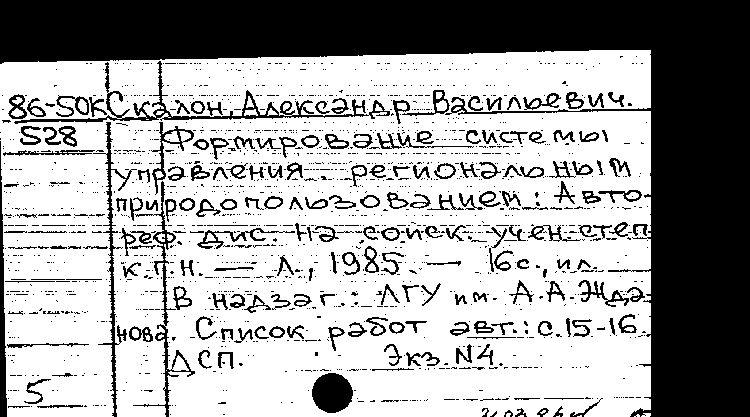 86-50К Скалон, Александр Васильевич.
528 Формирование системы
управления региональным
природопользованием: Авто-
реф. дис. на соиск. учен. степ.
к.г.н. — Л., 1985. — 16с., ил.
В надзаг.: ЛГУ им. А.А. Жда-
нова. Список работ авт.: с.15-16.
ДСП. Экз. N4.
5